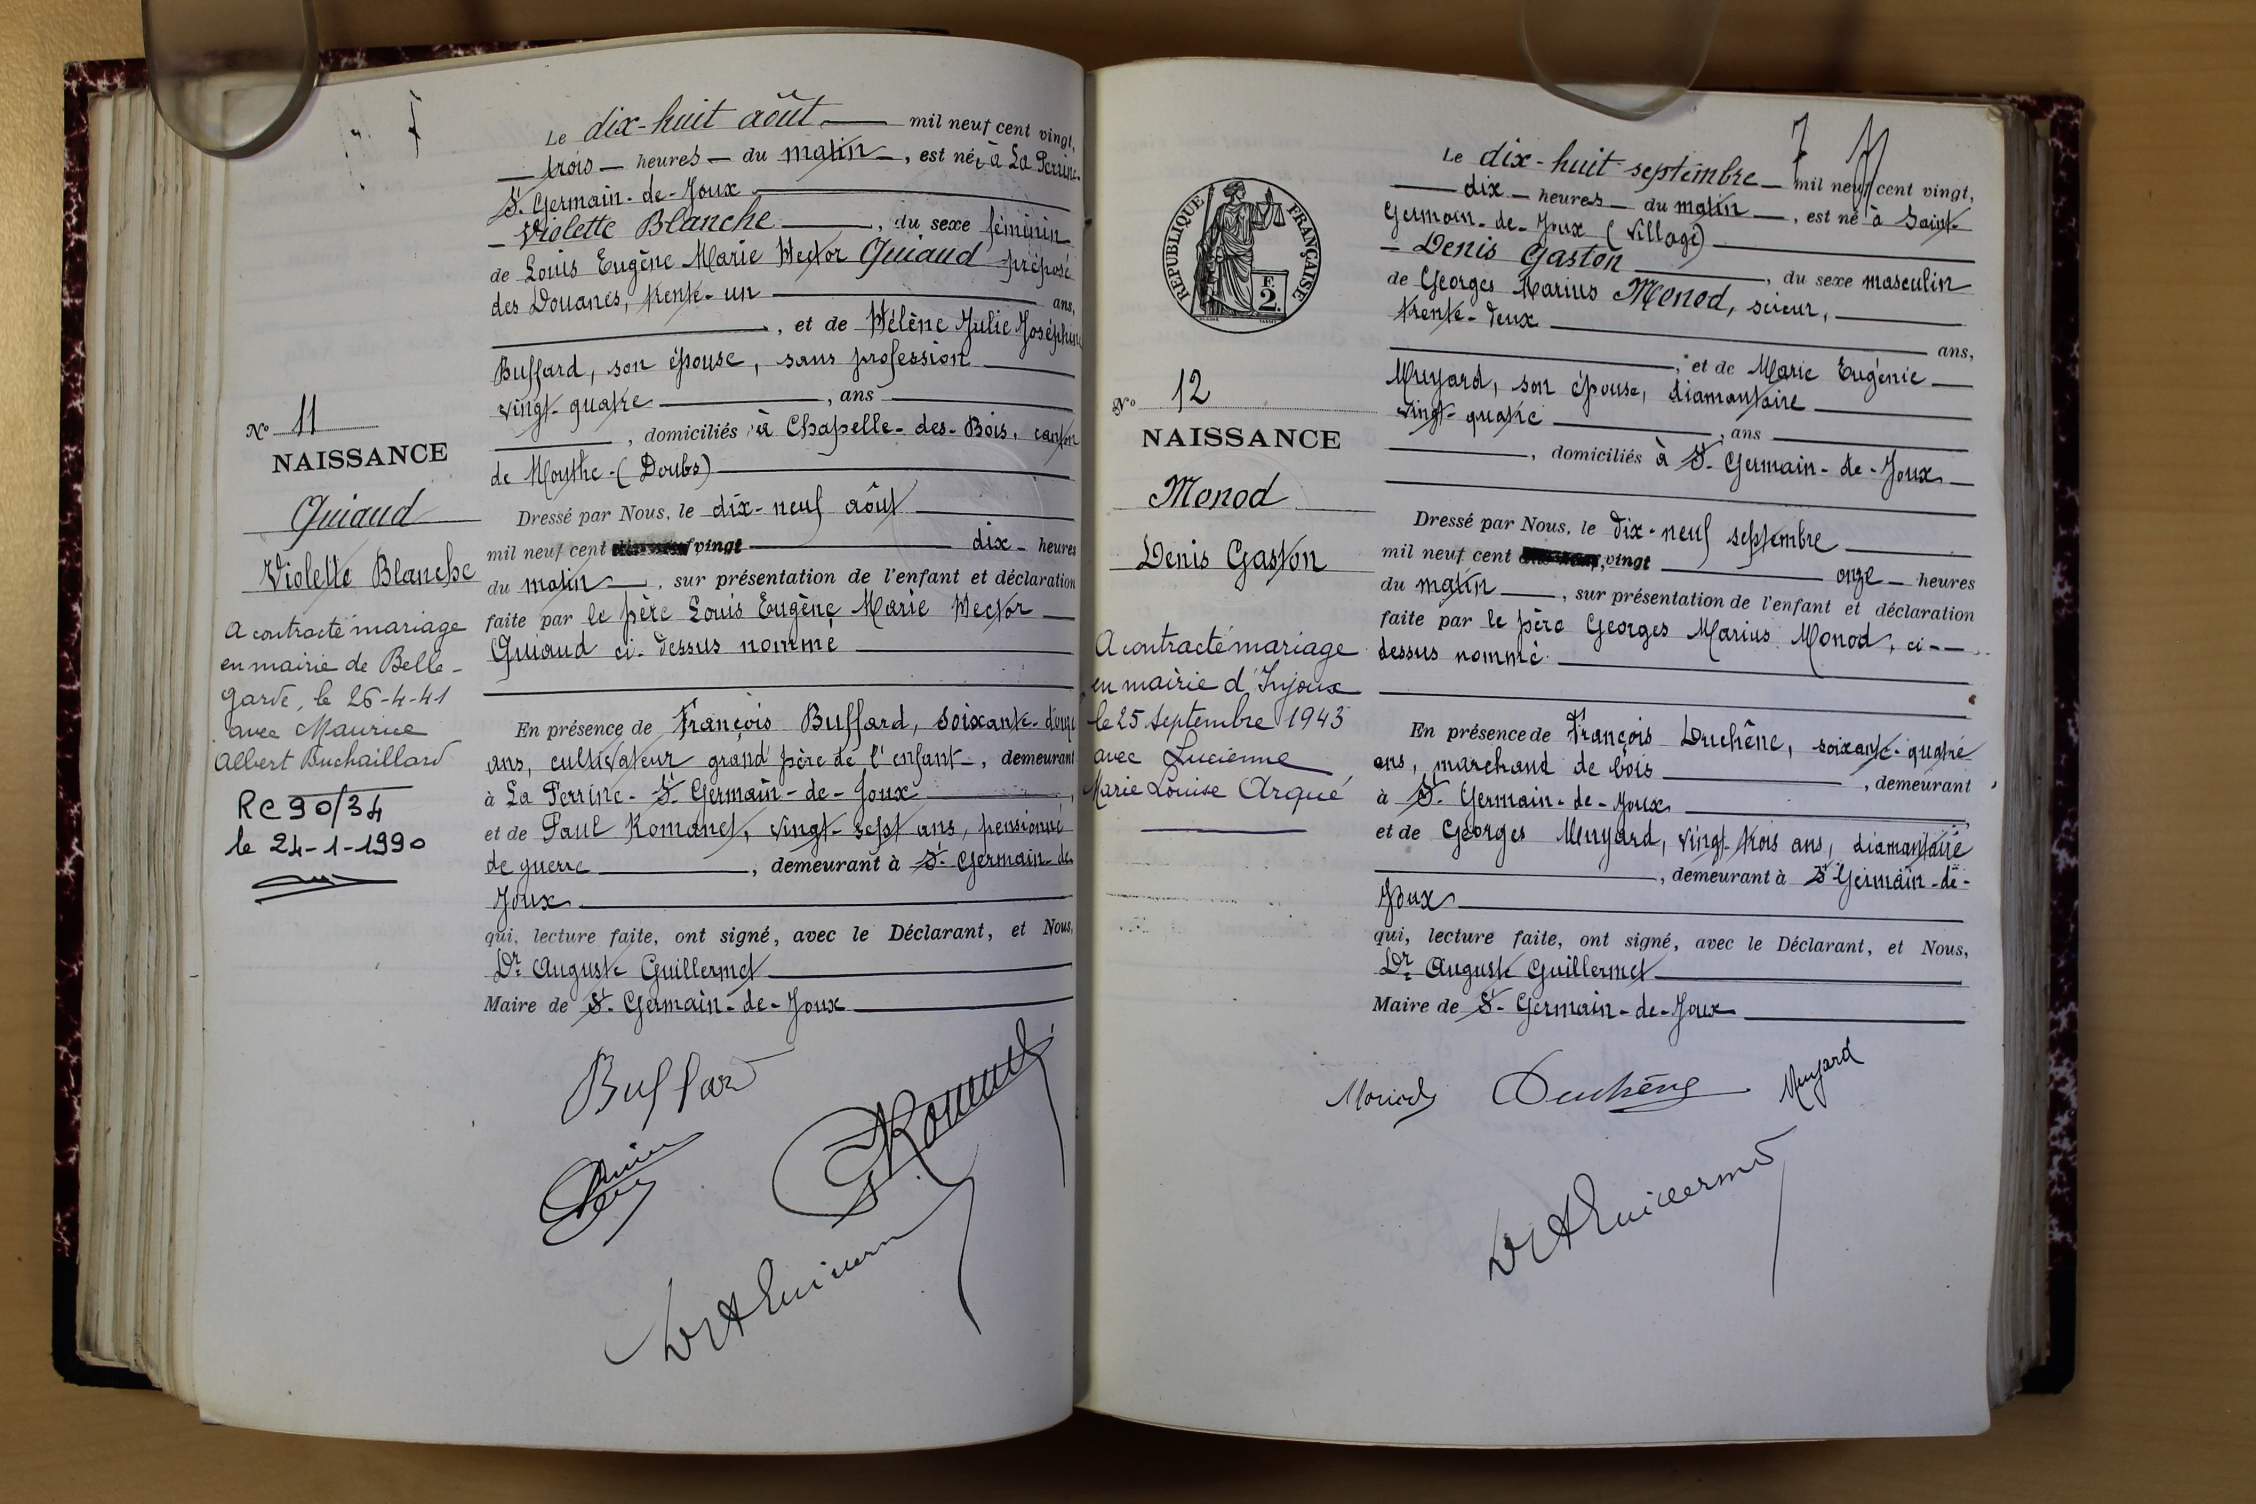 Le dix-huit août mil neuf cent vingt,
trois heures du matin, est née à La Perrine-
St. Germain-de-Joux
Violette Blanche, du sexe féminin
de Louis Eugène Marie Hector Guiaud préposé
des Douanes, trente-un ans,
, et de Hélène Julie Joséphine
Buffard, son épouse, sans profession
vingt-quatre, ans
, domiciliés à Chapelle-des-Bois, canton
de Mouthe-(Doubs)
Dressé par Nous, le dix-neuf août
mil neuf cent vingt dix heures
du matin, sur présentation de l'enfant et déclaration
faite par le père Louis Eugène Marie Hector
Guiaud ci-dessus nommé
En présence de François Buffard, soixante-douze
ans, cultivateur grand père de l'enfant, demeurant
à La Perrine-St. Germain-de-Joux,
et de Paul Romanet, vingt-sept ans, pensionné
de guerre, demeurant à St. Germain-de-
Joux
qui, lecture faite, ont signé, avec le Déclarant, et Nous,
Dr Auguste Guillermet
Maire de St. Germain-de-Joux
Buffard
No 11
NAISSANCE
Guiaud
Violette Blanche
A contracté mariage
en mairie de Belle-
garde, le 26-4-41
avec Maurice
Albert Buchaillard
RC 90/34
le 24-1-1990
Le dix-huit septembre mil neuf cent vingt,
dix heures du matin, est né à Saint-
Germain-de-Joux (village)
Denis Gaston, du sexe masculin
de Georges Marius Monod, scieur,
trente-deux
ans,
, et de Marie Eugénie
Muyard, son épouse, diamantaire
vingt-quatre, ans
, domiciliés à St. Germain-de-Joux
Dressé par Nous, le dix-neuf septembre
mil neuf cent vingt onze heures
du matin, sur présentation de l'enfant et déclaration
faite par le père Georges Marius Monod, ci-
dessus nommé
En présence de François Duchêne, soixante-quatre
ans, marchand de bois, demeurant
à St. Germain-de-Joux
et de Georges Muyard, vingt-trois ans, diamantaire
, demeurant à St Germain-de-
Joux
qui, lecture faite, ont signé, avec le Déclarant, et Nous,
Dr Auguste Guillermet
Maire de St. Germain-de-Joux
Monod Duchêne Muyard
RÉPUBLIQUE FRANÇAISE
E
2.
No 12
NAISSANCE
Monod
Denis Gaston
A contracté mariage
en mairie d'Injoux
le 25 septembre 1943
avec Lucienne
Marie Louise Arqué